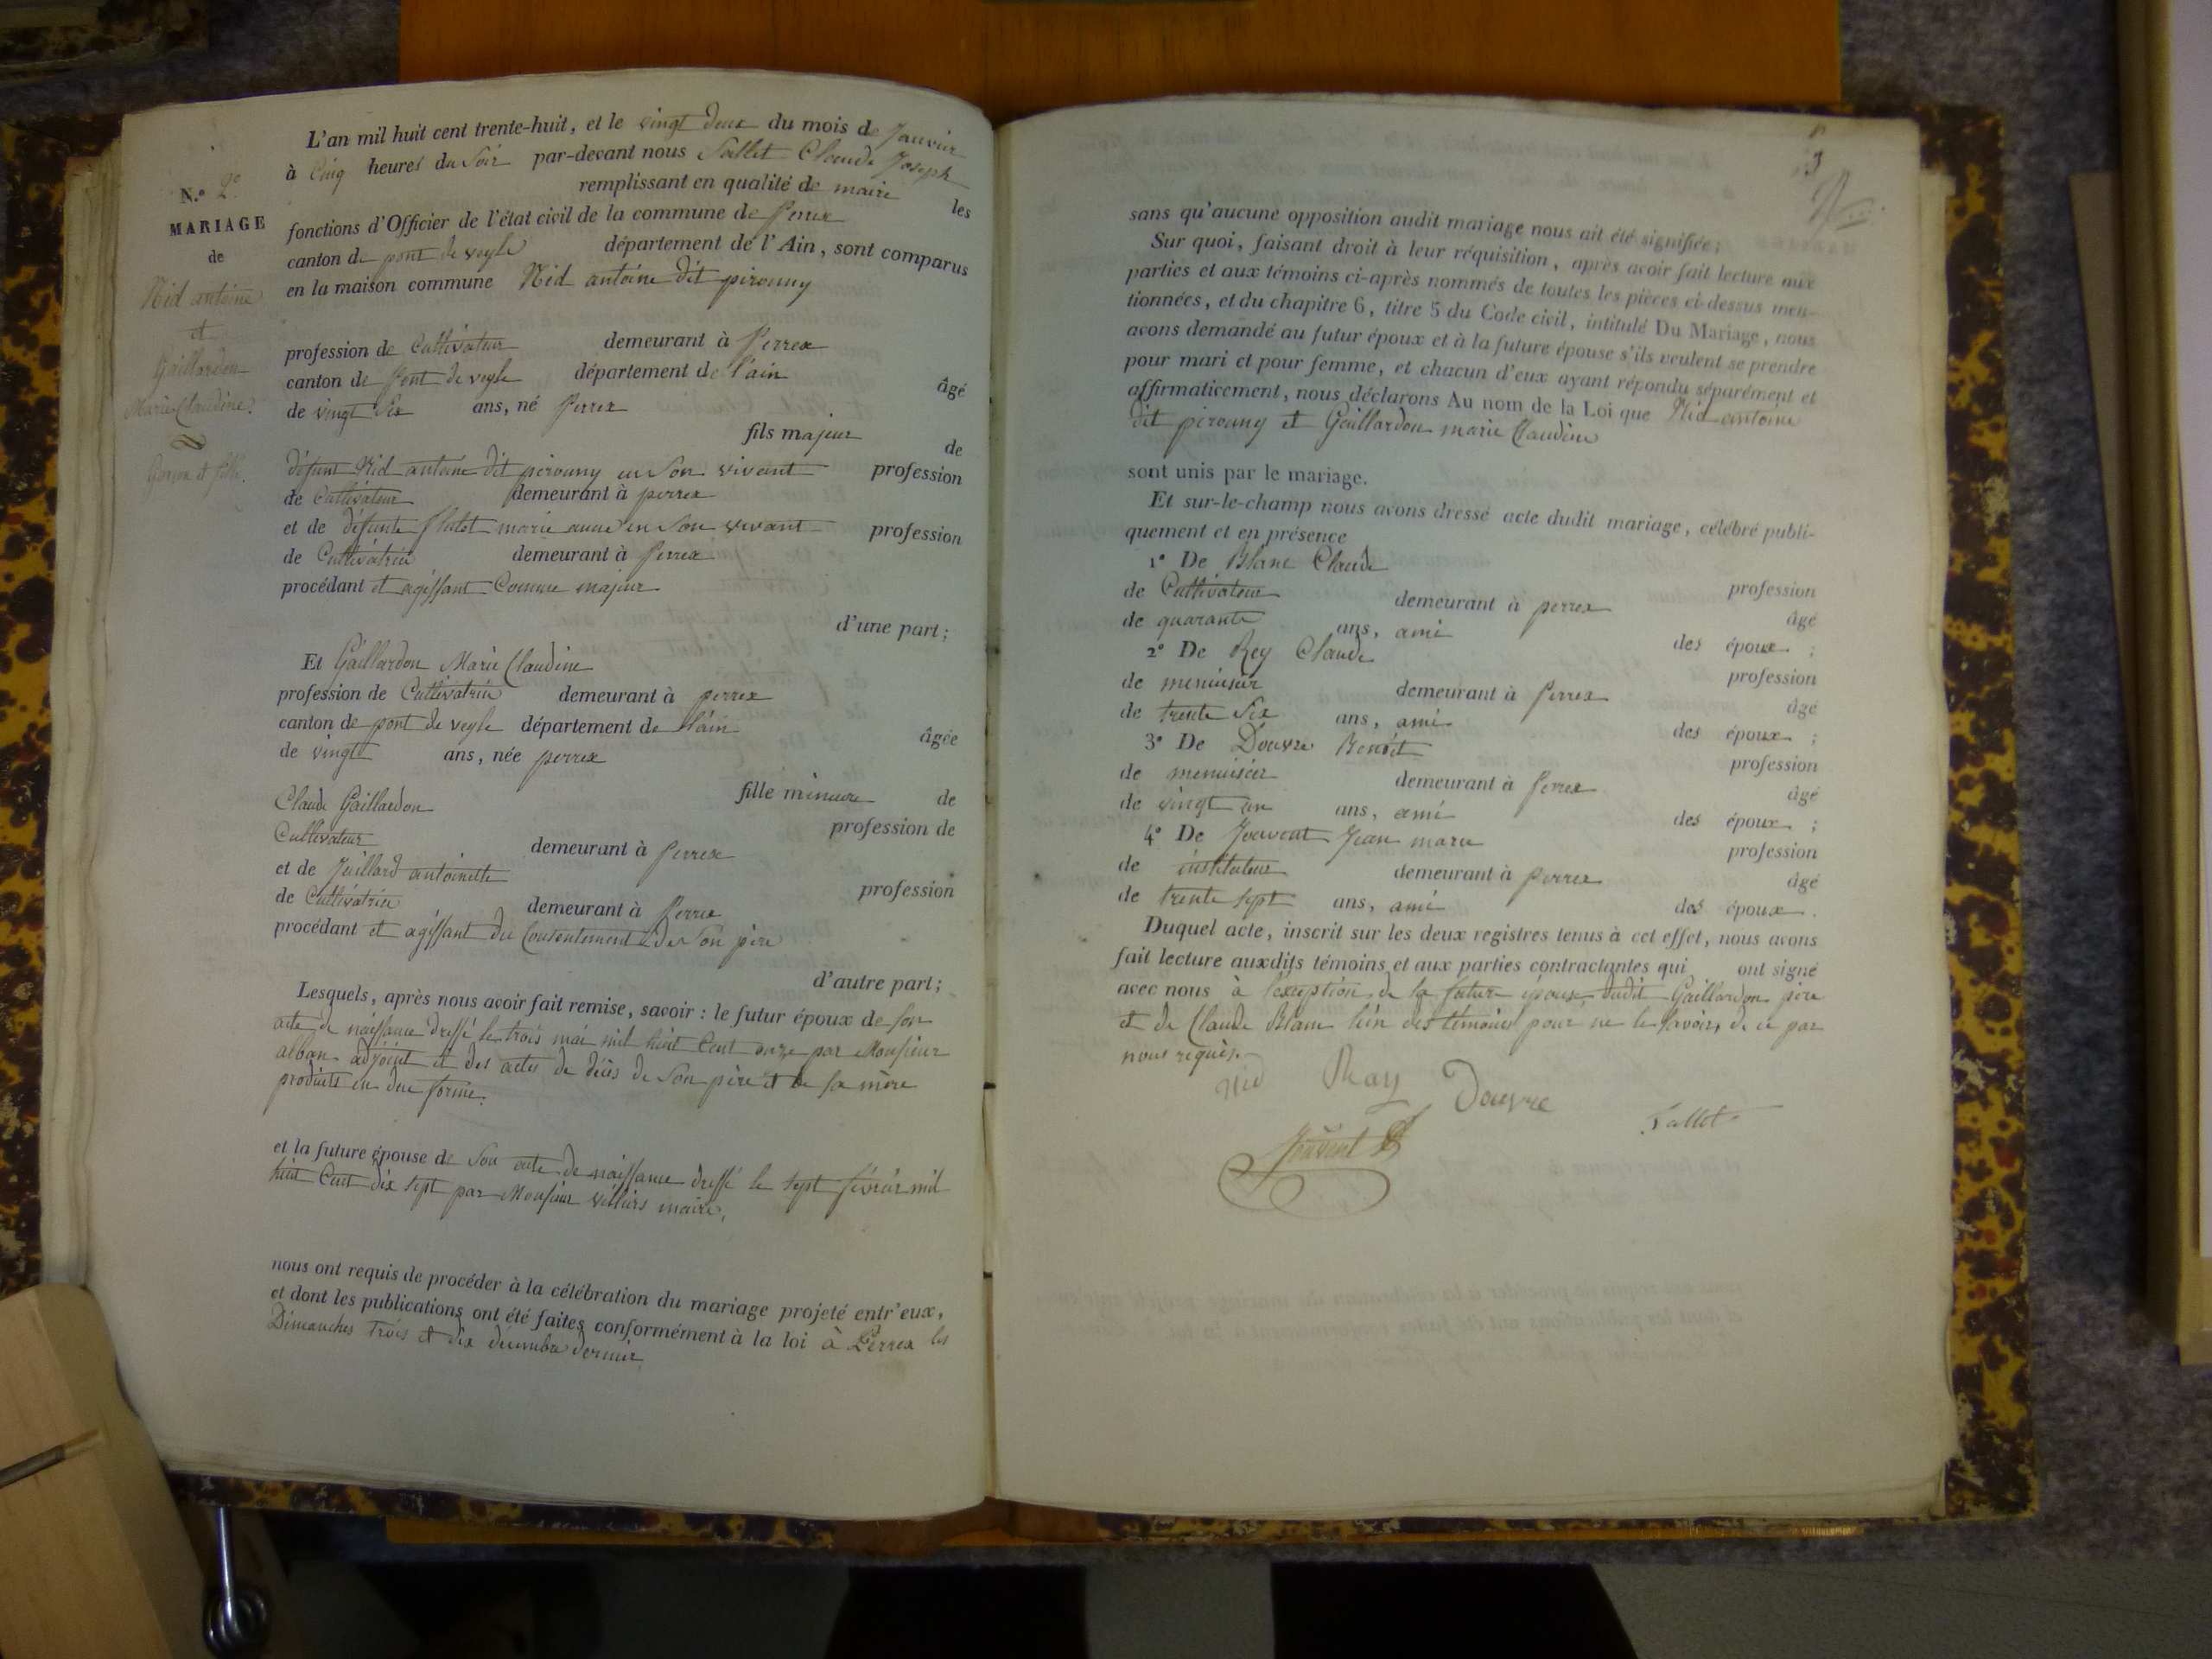 N.º 2e
MARIAGE
de
Nid antoine
et
Gaillardon
Marie Claudine.
Garçon et fille.
L'an mil huit cent trente-huit, et le vingt deux du mois de Janvier
à Cinq heures du Soir par-devant nous Tallet Claude Joseph
remplissant en qualité de maire les
fonctions d'Officier de l'état civil de la commune de Perrex
canton de pont de veyle département de l'Ain, sont comparus
en la maison commune Nid antoine dit pirouny
profession de Cultivateur demeurant à Perrex
canton de Pont de veyle département de l'ain âgé
de vingt Six ans, né Perrex
fils majeur de
défunt Nid antoine dit pirouny en Son vivant profession
de Cultivateur demeurant à perrex
et de défunte flutet marie anne en Son vivant profession
de Cultivatrice demeurant à Perrex
procédant et agissant Comme majeur
d'une part;
Et Gaillardon Marie Claudine
profession de Cultivatrice demeurant à perrex
canton de pont de veyle département de l'ain âgée
de vingt ans, née perrex
fille mineure de
Claude Gaillardon profession de
Cultivateur demeurant à Perrex
et de Juillard antoinette profession
de Cultivatrice demeurant à Perrex
procédant et agissant du Consentement de Son père
d'autre part;
Lesquels, après nous avoir fait remise, savoir : le futur époux de son
acte de naissance dressé le trois mai mil huit Cent onze par Monsieur
alban adjoint et des actes de décès de Son père et de sa mère
produits en due forme.
et la future épouse de Son acte de naissance dressé le sept février mil
huit Cent dix sept par Monsieur villiers maire.
nous ont requis de procéder à la célébration du mariage projeté entr'eux,
et dont les publications ont été faites conformément à la loi à Perrex les
Dimanches trois et dix décembre dernier
3
sans qu'aucune opposition audit mariage nous ait été signifiée;
Sur quoi, faisant droit à leur réquisition, après avoir fait lecture aux
parties et aux témoins ci-après nommés de toutes les pièces ci-dessus men-
tionnées, et du chapitre 6, titre 5 du Code civil, intitulé Du Mariage, nous
avons demandé au futur époux et à la future épouse s'ils veulent se prendre
pour mari et pour femme, et chacun d'eux ayant répondu séparément et
affirmativement, nous déclarons Au nom de la Loi que Nid antoine
dit pirouny et Gaillardon marie Claudine
sont unis par le mariage.
Et sur-le-champ nous avons dressé acte dudit mariage, célébré publi-
quement et en présence
1º De Blanc Claude profession
de Cultivateur demeurant à perrex âgé
de quarante ans, ami des époux ;
2º De Rey Claude profession
de menuisier demeurant à Perrex âgé
de trente Six ans, ami des époux ;
3º De Douvre Benoit profession
de menuisier demeurant à Perrex âgé
de vingt un ans, ami des époux ;
4º De Jouvent Jean marie profession
de instituteur demeurant à perrex âgé
de trente sept ans, ami des époux.
Duquel acte, inscrit sur les deux registres tenus à cet effet, nous avons
fait lecture auxdits témoins et aux parties contractantes qui ont signé
avec nous à l'exception de la future épouse dudit Gaillardon père
et de Claude Blanc l'un des témoins pour ne le savoir, de ce par
nous requis.
Nid Ray Douvre
Jouvent Tallet